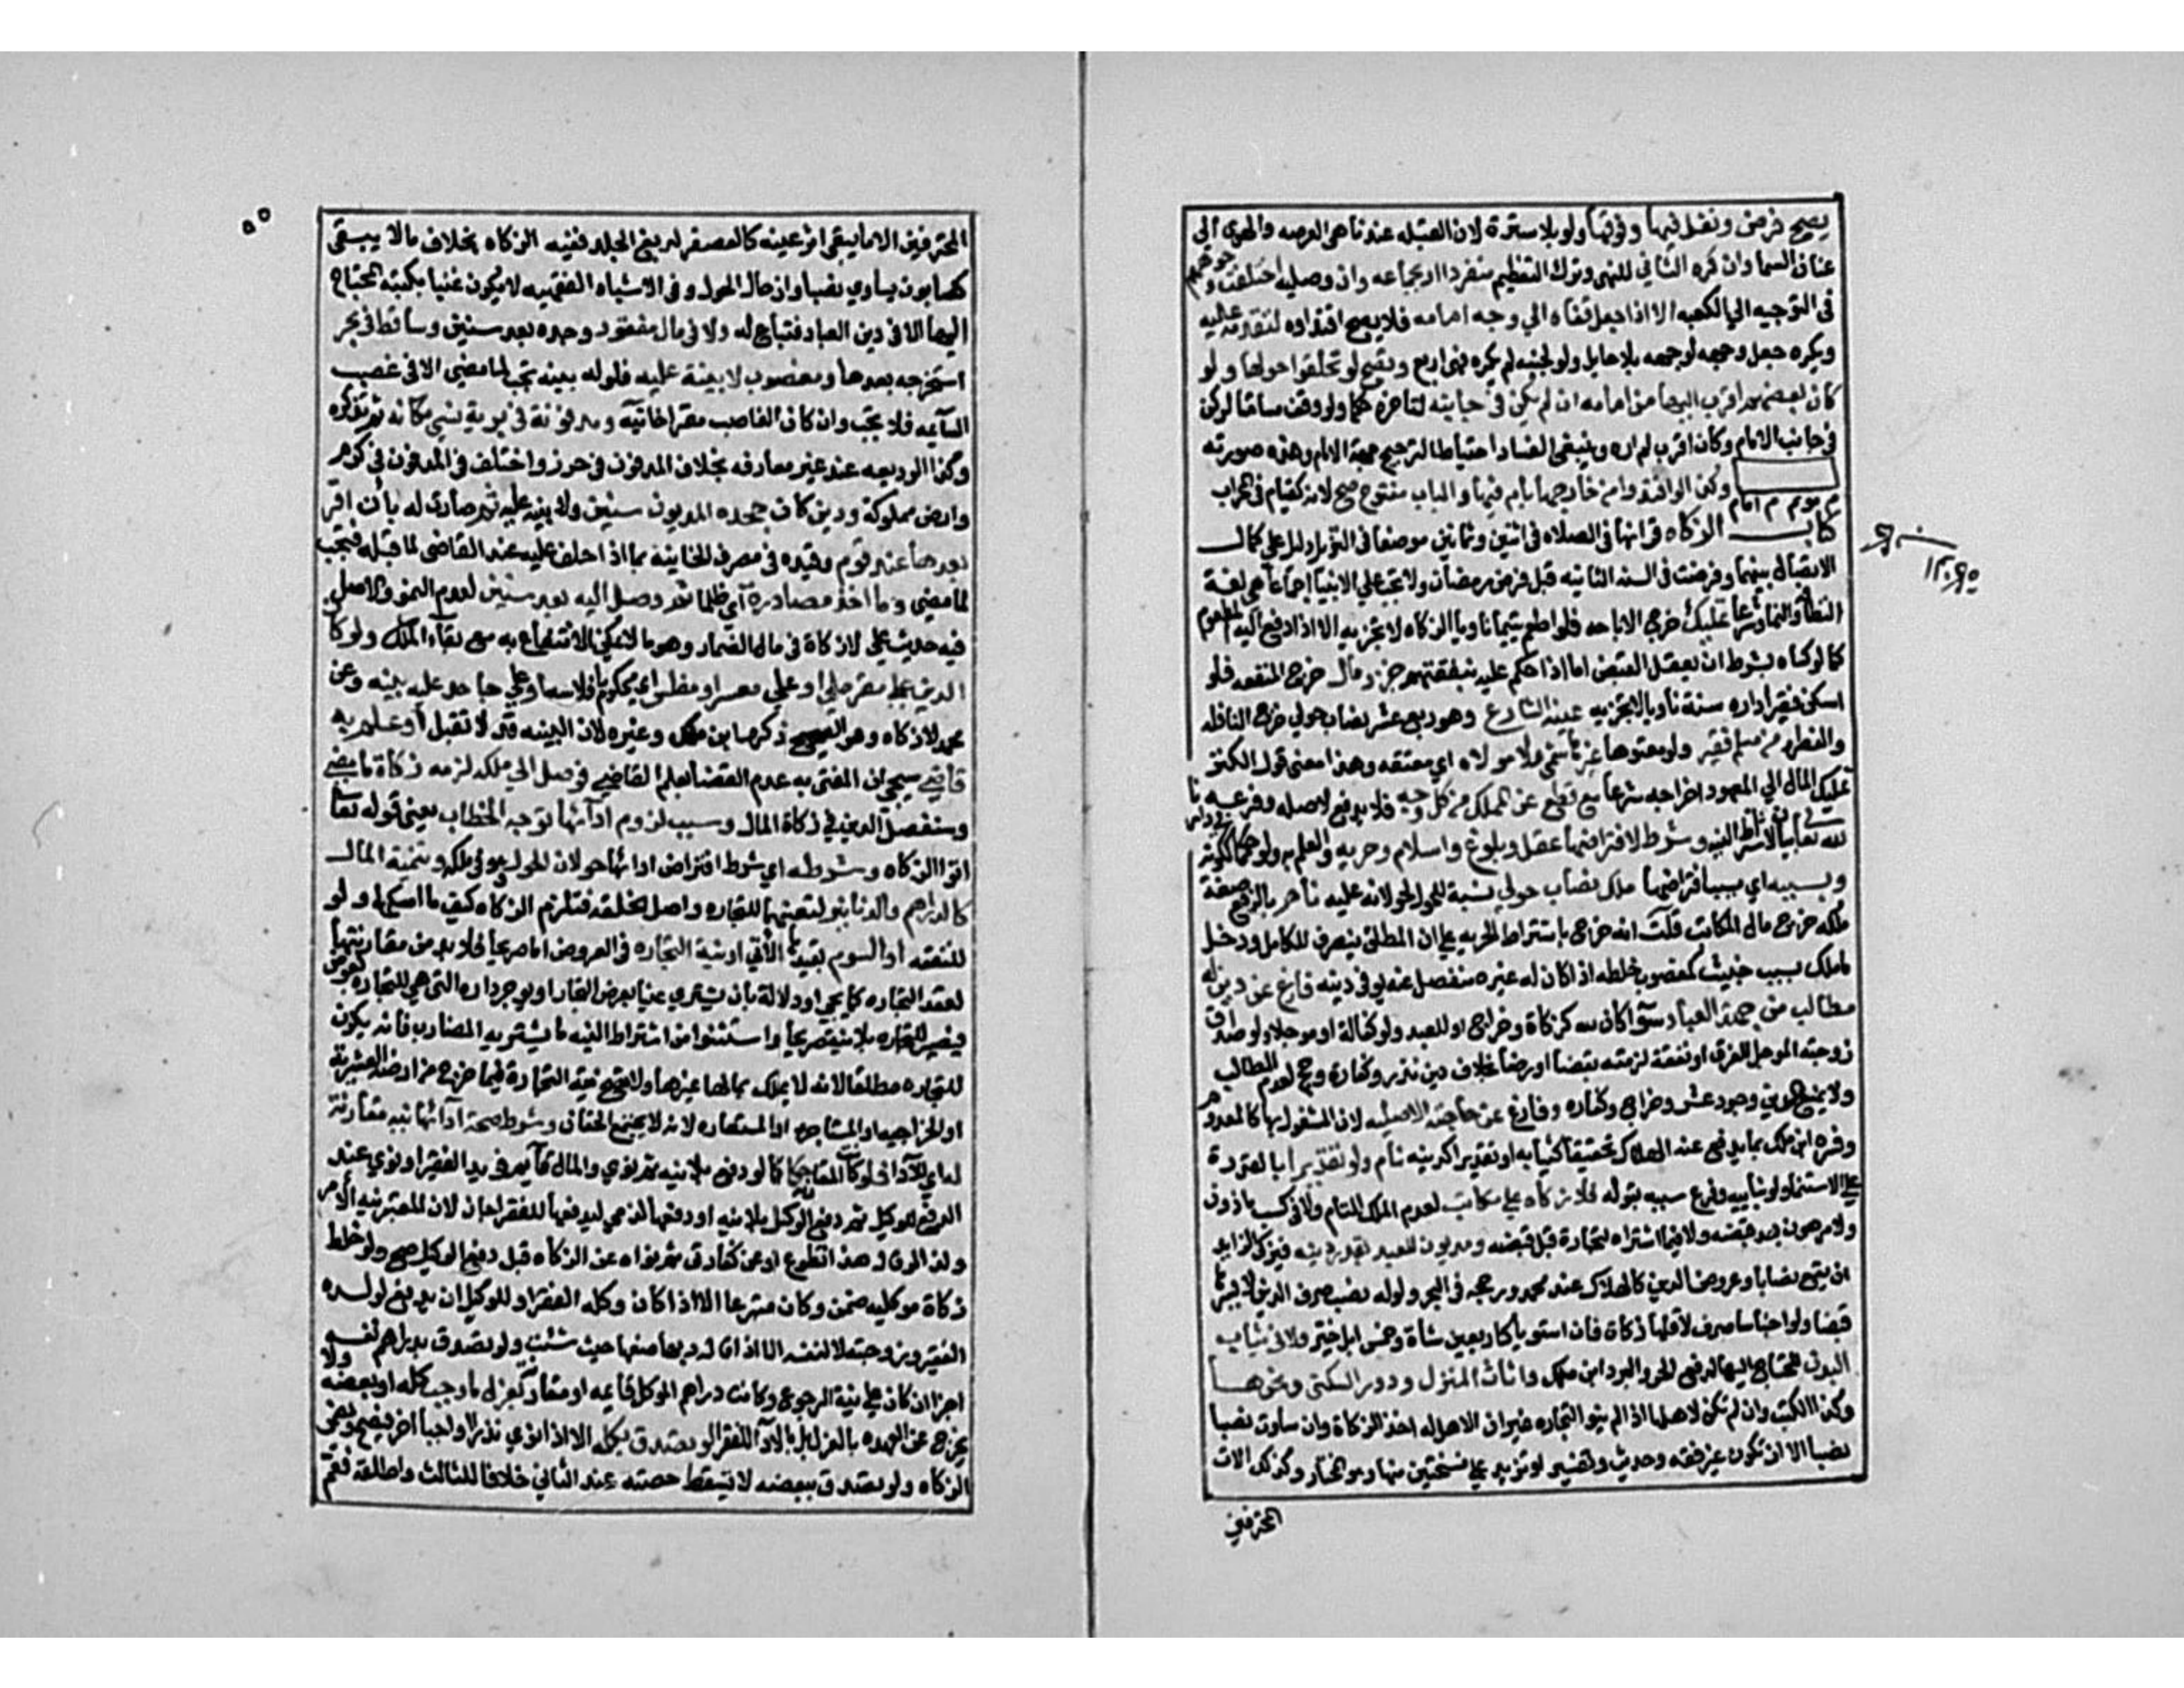 يصح فرض ونفل فيها وفوقها ولو بلا سترة لان القبله عندنا هي العرصه والهوى الي
عنان السما وان كره الثاني للنهي وترك التعظيم منفردا او بجماعه وان وصليه اختلفت وجوههم
في التوجيه الي الكعبه الا اذا جعل قفاه الي وجه امامه فلا يصح اقتداوه لتقدمه عليه
ويكره جعل وجهه لوجهه بلا حايل ولو لجنبه لم يكره فهي اربع ويصح لو تحلقوا حولها ولو
كان بعضهم اقرب اليها من امامه ان لم يكن في جانبه لتاخره حكما ولو وقف مسامتا لركن
في جانب الامام وكان اقرب لم اره وينبغي الفساد احتياطا لترجيح جهة الامام وهذه صورته
م موتم م امام وكذا لو اقتدوا من خارجها بامام فيها والباب مفتوح صح لانه كقيام في المحراب
كتاب الزكاه قرانها في الصلاه في اثنين وثمانين موضعا في التنزيل دليل علي كمال
الاتصال بينهما وفرضت في السنه الثانيه قبل فرض رمضان ولا تجب علي الانبيا اجماعا هي لغة
الطهارة والنما وشرعا تمليك خرج الاباحه فلو اطعم يتيما ناويا الزكاه لا تجزيه الا اذا دفع اليه المطعوم
كما لو كساه بشرط ان يعقل القبض اما اذا حكم عليه بنفقتهم جزو مال خرج المنفعه فلو
اسكن فقيرا داره سنة ناويا لا تجزيه عينه الشارع وهو ربع عشر نصاب حولي خرج النافله
والفطره من مسلم فقير ولو معتوها غير هاشمي ولا مولاه اي معتقه وهذا معني قول الكنز
تمليك المال اي المعهود اخراجه شرعا مع قطع عن الملك من كل وجه فلا يدفع لاصله وفرعه
لله تعالي بيان لاشتراط النيه وشرط لافتراضها عقل وبلوغ واسلام وحريه والعلم به ولو حكما ككونه في دارنا
وسببه اي سبب افتراضها ملك نصاب حولي نسبة للحول لحولانه عليه تام بالرفع صفة
ملك خرج مال المكاتب قلت انه خرج باشتراط الحريه علي ان المطلق ينصرف للكامل ودخل
ما ملك بسبب خبيث كمغصوب خلطه اذا كان له غيره منفصل عنه يوفي دينه فارغ عن دين له
مطالب من جهة العباد سوآ كان لله كزكاة وخراج او للعبد ولو كفالة او موجلا ولو صداق
زوجته الموجل للفراق او نفقة لزمته بقضا او رضا بخلاف دين نذر وكفارة وحج لعدم المطالب
ولا يمنع الدين وجوب عشر وخراج وكفاره وفارغ عن حاجته الاصليه لان المشغول بها كالمعدوم
وفسره ابن ملك بما يدفع عنه الهلاك تحقيقا كثيابه او تقديرا كدينه نام ولو تقديرا بالقدرة
علي الاستنما ولو بنايبه وفرع سببه بقوله فلا زكاه علي مكاتب لعدم الملك التام ولا في كسب ماذون
ولا مرهون بعد قبضه ولا فيما اشتراه لتجارة قبل قبضه ومديون للعبد بقدر دينه فيزكي الزايد
ان بلغ نصابا وعروض الدين كالهلاك عند محمد ورجحه في البحر ولو له نصب صرف الدين لايسرها
قضا ولو اجناسا صرف لاقلها زكاة فان استويا كاربعين شاة وخمس ابل خير ولا في ثياب
البدن المحتاج اليها لدفع الحر والبرد ابن ملك واثاث المنزل ودور السكني ونحوها
وكذا الكتب وان لم تكن لاهلها اذا لم ينو التجاره غير ان الاهل له اخذ الزكاة وان ساوت نصبا
نصبا الا ان تكون غير فقه وحديث وتفسير او تزيد علي نسختين منها هو المختار وكذلك الات
المحترفين
المحترفين الا ما يبقي اثر عينه كالعصفر لدبغ الجلد ففيه الزكاه بخلاف ما لا يبقي
كصابون يساوي نصبا وان حال الحول وفي الاشباه الفقيه لا يكون غنيا بكتبه المحتاج
اليها الا في دين العباد فتباع له ولا في مال مفقود وجده بعد سنين وساقط في بحر
استخرجه بعدها ومغصوب لا بينة عليه فلو له بينه تجب لما مضي الا في غصب
السآيمه فلا تجب وان كان الغاصب مقرا خانيه ومدفونة في برية نسي مكانه ثم تذكره
وكذا الوديعه عند غير معارفه بخلاف المدفون في حرز واختلف في المدفون في كرم
وارض مملوكة ودين كان جحده المديون سنين ولا بينه عليه ثم صارت له بان اقر
بعدها عند قوم وقيده في مصرف الخانية بما اذا حلف عليه عند القاضي لما قبله فتجب
لما مضي وما اخذ مصادرة اي ظلما ثم وصل اليه بعد سنين لعدم النمو والاصل
فيه حديث علي لا زكاة في مال الضمار وهو ما لا يمكن الانتفاع به مع بقاء الملك ولو كان
الدين علي مقر ملي او علي معسر او مفلس اي محكوم بافلاسه او علي جاحد عليه بينه وعن
محمد لا زكاه وهو الصحيح ذكره ابن ملك وغيره لان البينه قد لا تقبل او علم به
قاضي سيجي ان المفتي به عدم القضا بعلم القاضي فوصل الي ملكه لزمه زكاة ما مضي
وسنفصل الدين في زكاة المال وسبب لزوم ادآئها توجه الخطاب يعني قوله تعالي
اتوا الزكاه وشرطه اي شرط افتراض ادائها حولان الحول وهو في ملكه وثمنية المال
كالدراهم والدنانير لتعينهما للتجاره باصل الخلقه فتلزم الزكاه كيف ما امسكها ولو
للنفقه او السوم بقيدها الاتي او نية التجاره في العروض اما صريحا فلا بد من مقارنتها
لعقد التجاره كما يجي او دلالة بان يشتري عينا بعرض التجارا او يوجر داره التي هي للتجاره بعرض
فيصير للتجاره بلا نية صريحا واستثنوا من اشتراط النيه ما يشتريه المضارب فانه يكون
للتجاره مطلقا لانه لا يملك بمالها غيرها ولا تصح نية التجارة فيما خرج من ارضه العشرية
او الخراجيه او المستاجره او المستعاره لانه لا يجتمع الحقان وشرط صحة ادآئها نيه مقارنة
له اي للآدا ولو كانت المقارنه حكما كما لو دفع بلا نيه ثم نوي والمال قآيم في يد الفقير او نوي عند
الدفع للوكيل ثم دفع الوكيل بلا نيه او دفعها لذمي ليدفعها للفقرا جاز لان المعتبر نيه الآمر
ولذا لو قال هذا تطوع او عن كفارتي ثم نواه عن الزكاه قبل دفع الوكيل صح ولو خلط
زكاة موكليه ضمن وكان متبرعا الا اذا كان وكله الفقرا وللوكيل ان يدفع لولده
الفقير وزوجته لا لنفسه الا اذا قال ربها ضعها حيث شئت ولو تصدق بدراهم نفسه
اجزا ان كان علي نية الرجوع وكانت دراهم الموكل قايمه او مقارنة بعزل ما وجب كله او بعضه ولا
يخرج عن العهده بالعزل بل بالادآ للفقرا او تصدق بكله الا اذا نوي نذرا او واجبا اخر فيصح ويضمن
الزكاه ولو تصدق ببعضه لا تسقط حصته عند الثاني خلافا للثالث واطلقه فعم